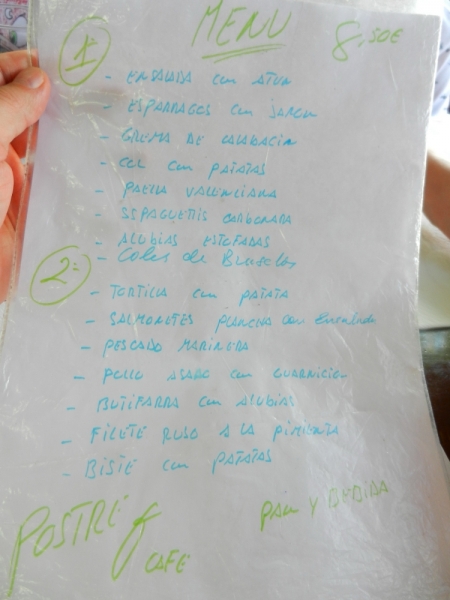 MENU 8,50€
1º
- ENSALADA con ATUN
- ESPARRAGOS con JAMON
- CREMA DE CALABACIN
- COL con PATATAS
- PAELLA VALENCIANA
- SSPAGUETTIS CARBONARA
- ALUBIAS ESTOFADAS
- Coles de Bruselas
2º
- TORTILLA con PATATA
- SALMONETES PLANCHA con Ensalada
- PESCADO MARINERA
- POLLO ASADO con GUARNICION
- BUTIFARRA con ALUBIAS
- FILETE RUSO A LA PIMIENTA
- BISTE con PATATAS
POSTRE y CAFE
PAN Y BEBIDA